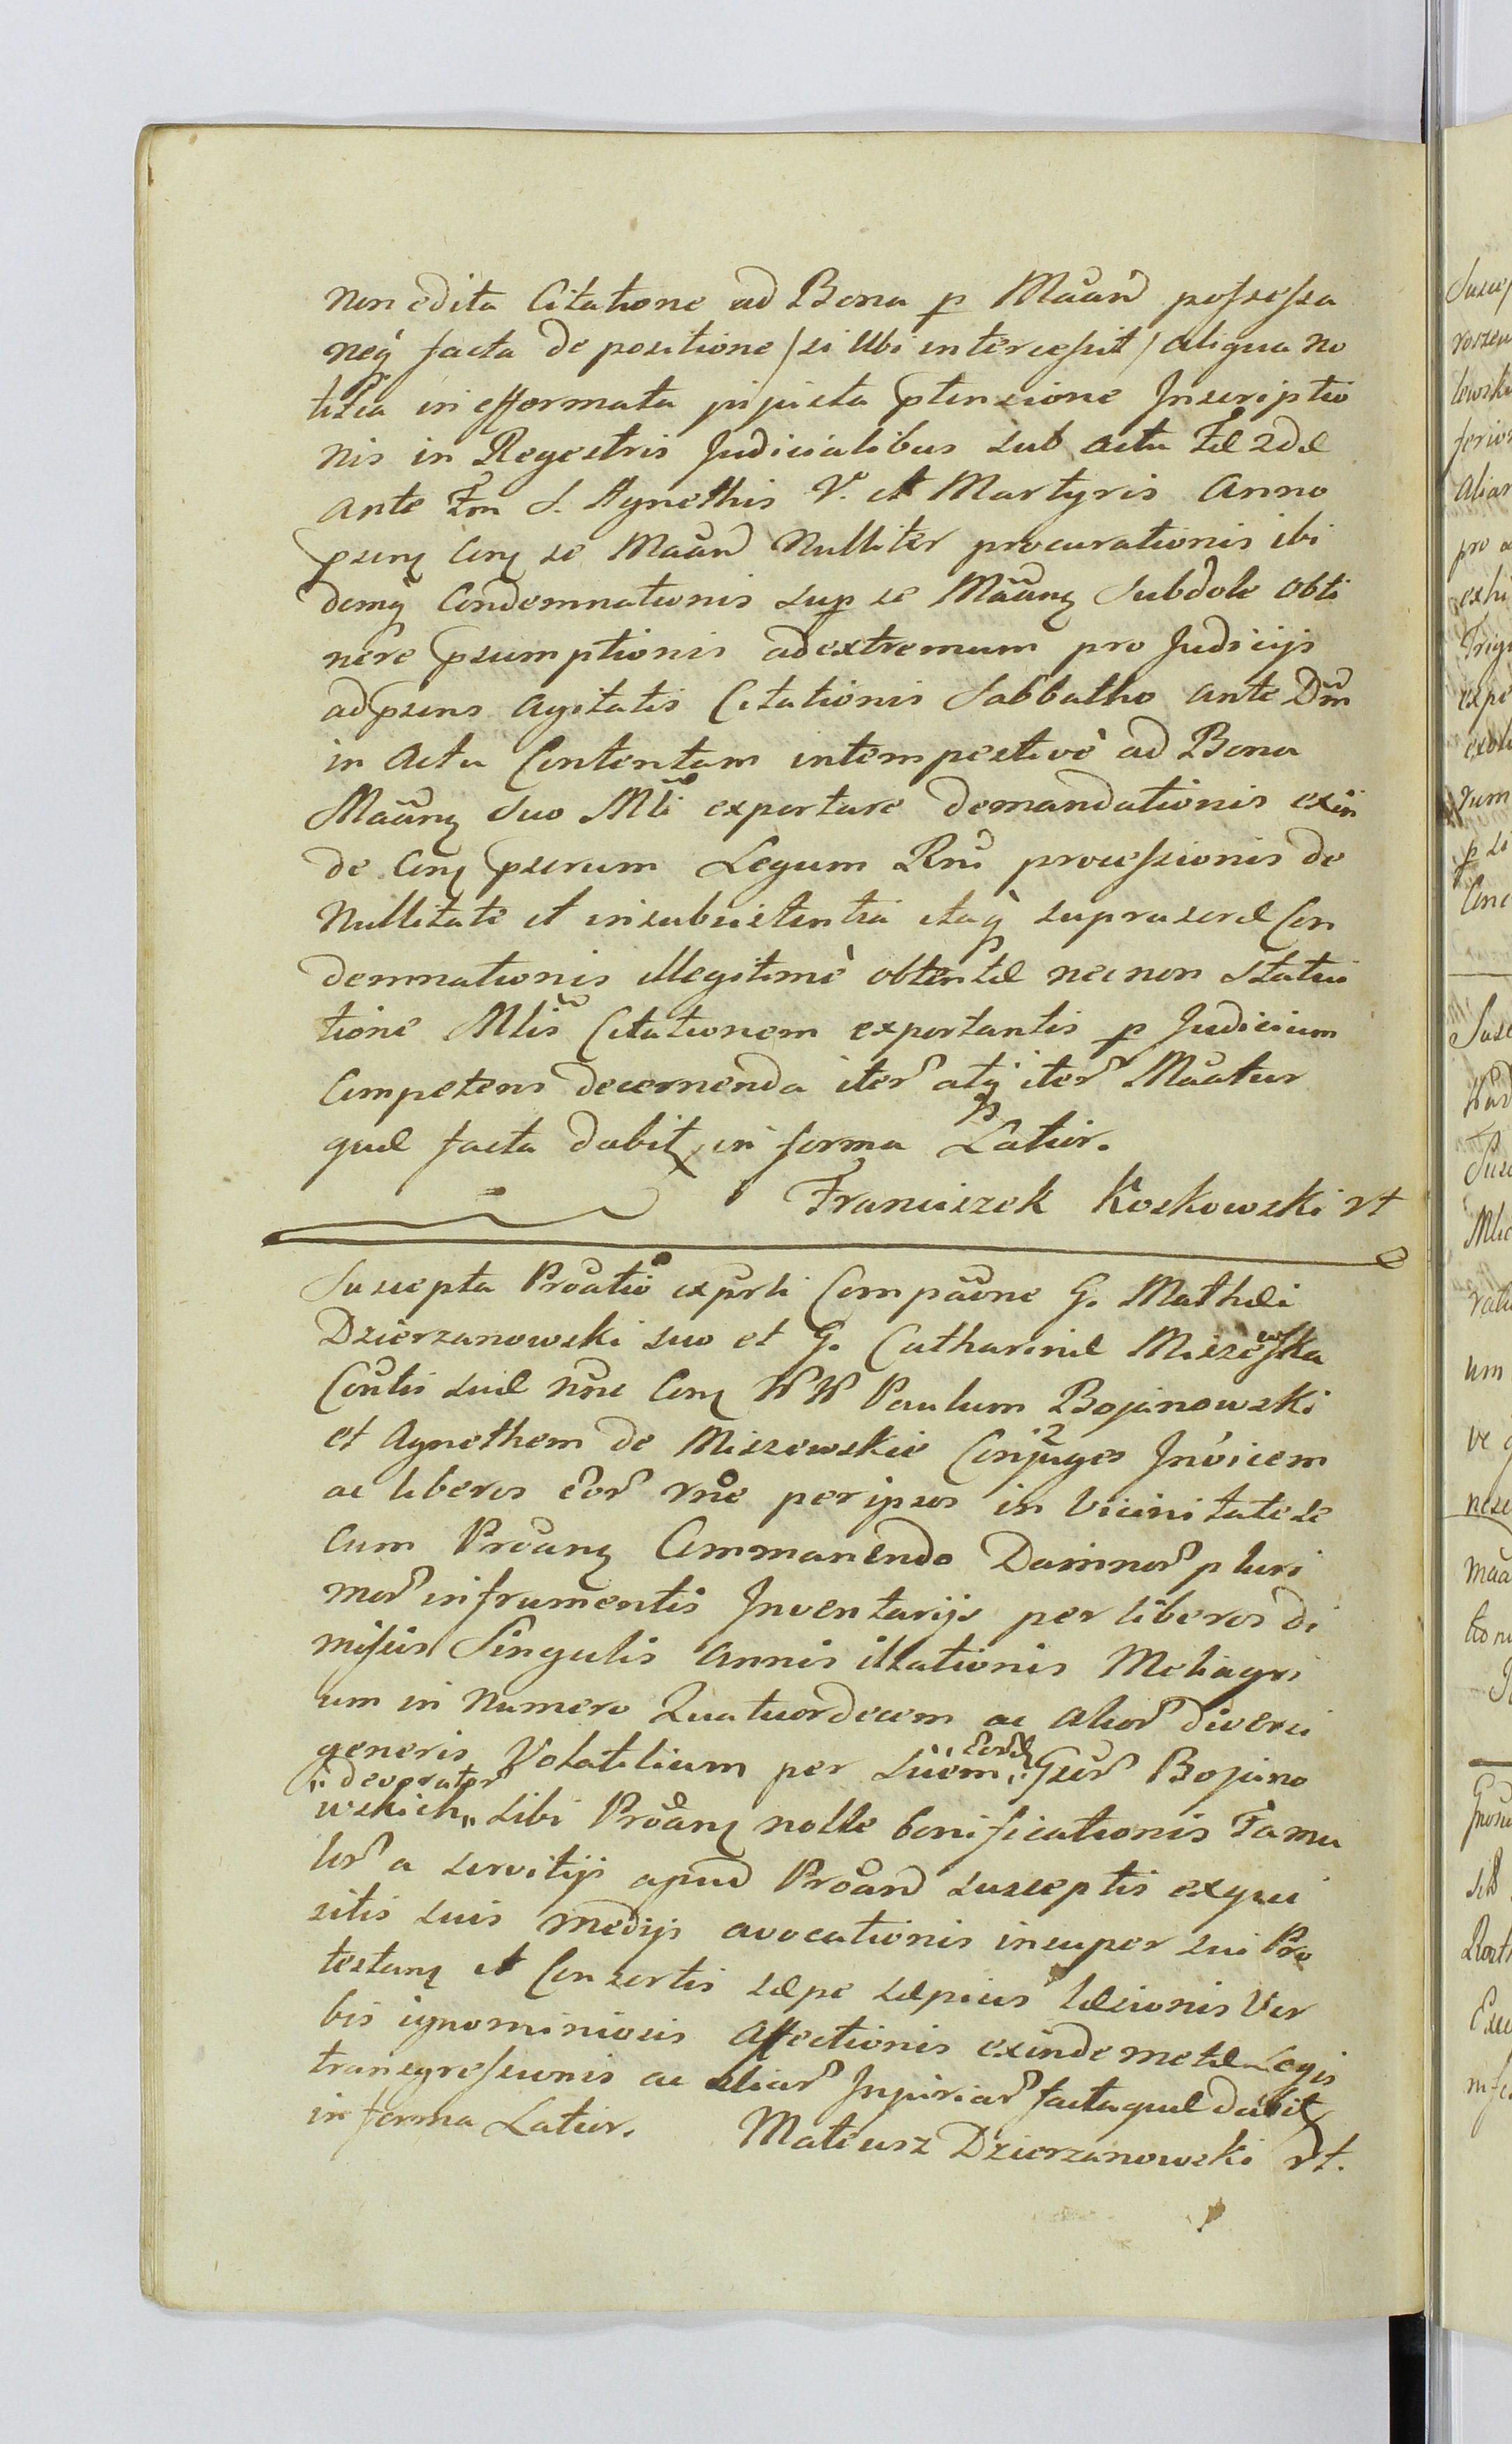 non edita Citatione ad Bona p Maand possessa
neq facta depositione / si Ubi intercessit / aliqua no
titia in efformata injusta ptensione Inscriptio
nis in Regestris Judicialibus sub actu Fæ 2dæ
ante Fm S. Agnethis V. et Martyris Anno
psenq Conq se Maand Nulliter procurationis ibi
demq Condemnationis sup se Maanq Subdole obti
nere psumptionis adextremum pro Judicijs
adpsens agitatis Citationis Sabbatho ante Dm
in Actu Contentam intempestivè ad Bona
Maanq suo Mli exportare demandationis exin
de Conq pserum Legum Rni processionis de
Nullitate et insubsistentia itaq suprascræ Con
demnationis illegitimè obtentæ necnon Statui
tione Mlis Citationem exportantis p Judicium
Competens decernenda iter atq iter Maatur
quæ facta dabit in forma Latior.
Franciszek Koskowski rt
Suscepta Proatio expsti Compaone G. Mathei
Dzierzanowski suo et G. Catharinæ Miszewska
Contis suæ nne Conq WW Paulum Bojanowski
et Agnethem de Miszewskie Conjuges Invicem
ac liberos eor rne per ipsos in Vicinitate se
cum Proanq Commanendo Damnor pluri
mor infrumentis Inventarijs per liberos di
missis Singulis Annis illationis Meliagri
um in Numero Quatuordecem ac alior diversi
generis Volatilium per Suem eord Gsur Bojano
devorator
wskich sibi Proanq nolle bonificationis Famu
lor a servitijs apud Proand susceptis exqui
sitis suis medijs avocationis insuper sui Pro
testanq et Consortis sæpe sæpius læsionis Ver
bis ignominiosis Affectionis exinde metæ Legis
transgressionis ac aliar Injuriar facta quæ dabit
in forma Latior. Mateusz Dzierzanowski rt.